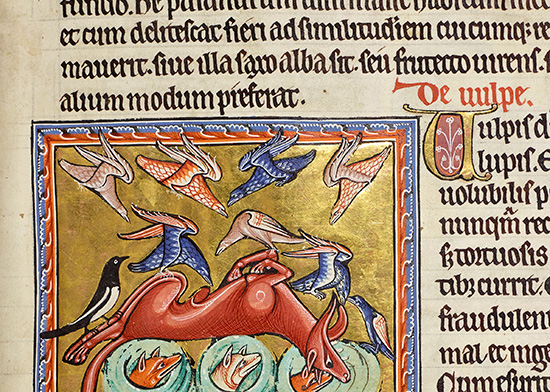 et cum delitescat fieri ad similitudiem cuicumq; re
mauerit. siue illa saxo alba sit. seu frutecto uirens. s
alium modum preferat. De uulpe.
Uulpis d
lupis. E
uolubilis p
nunqm̄ rec
s; tortuosis
tib; currit. E
fraudulen
mal et inge
Cum esuri